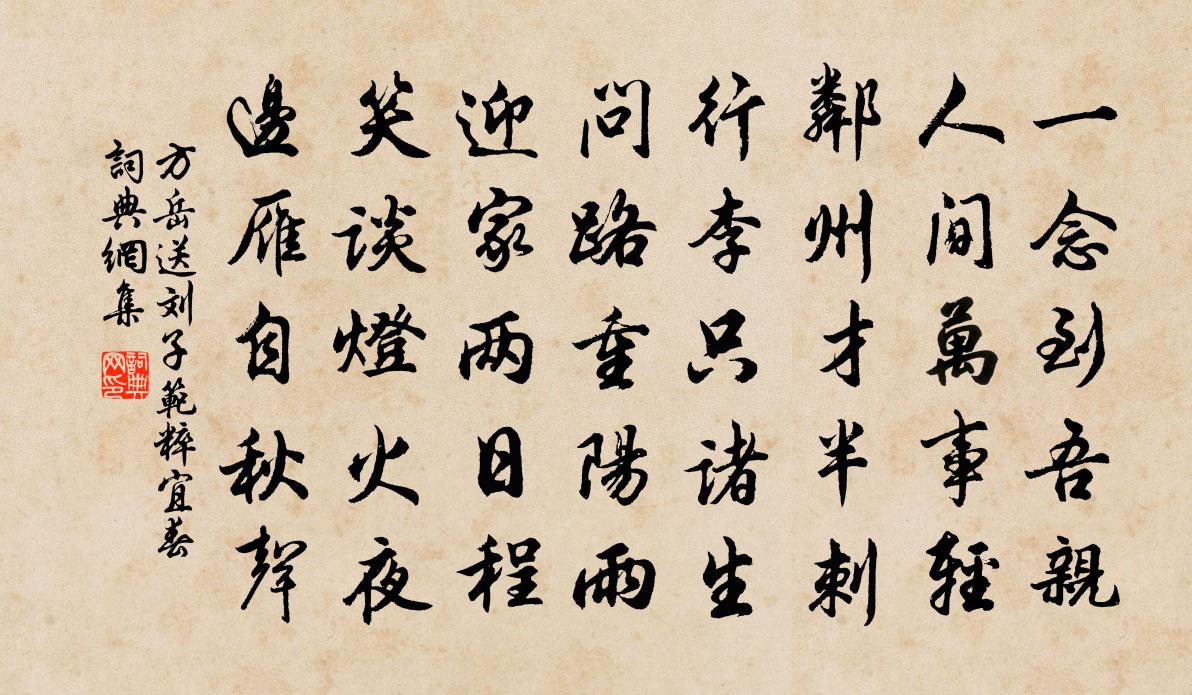 一念到吾親
人间萬事輕
鄰州才半刺
行李只诸生
问路重陽雨
迎家两日程
笑谈燈火夜
邊雁自秋聲
方岳送刘子範粹宜春
詞典網集
詞典网印